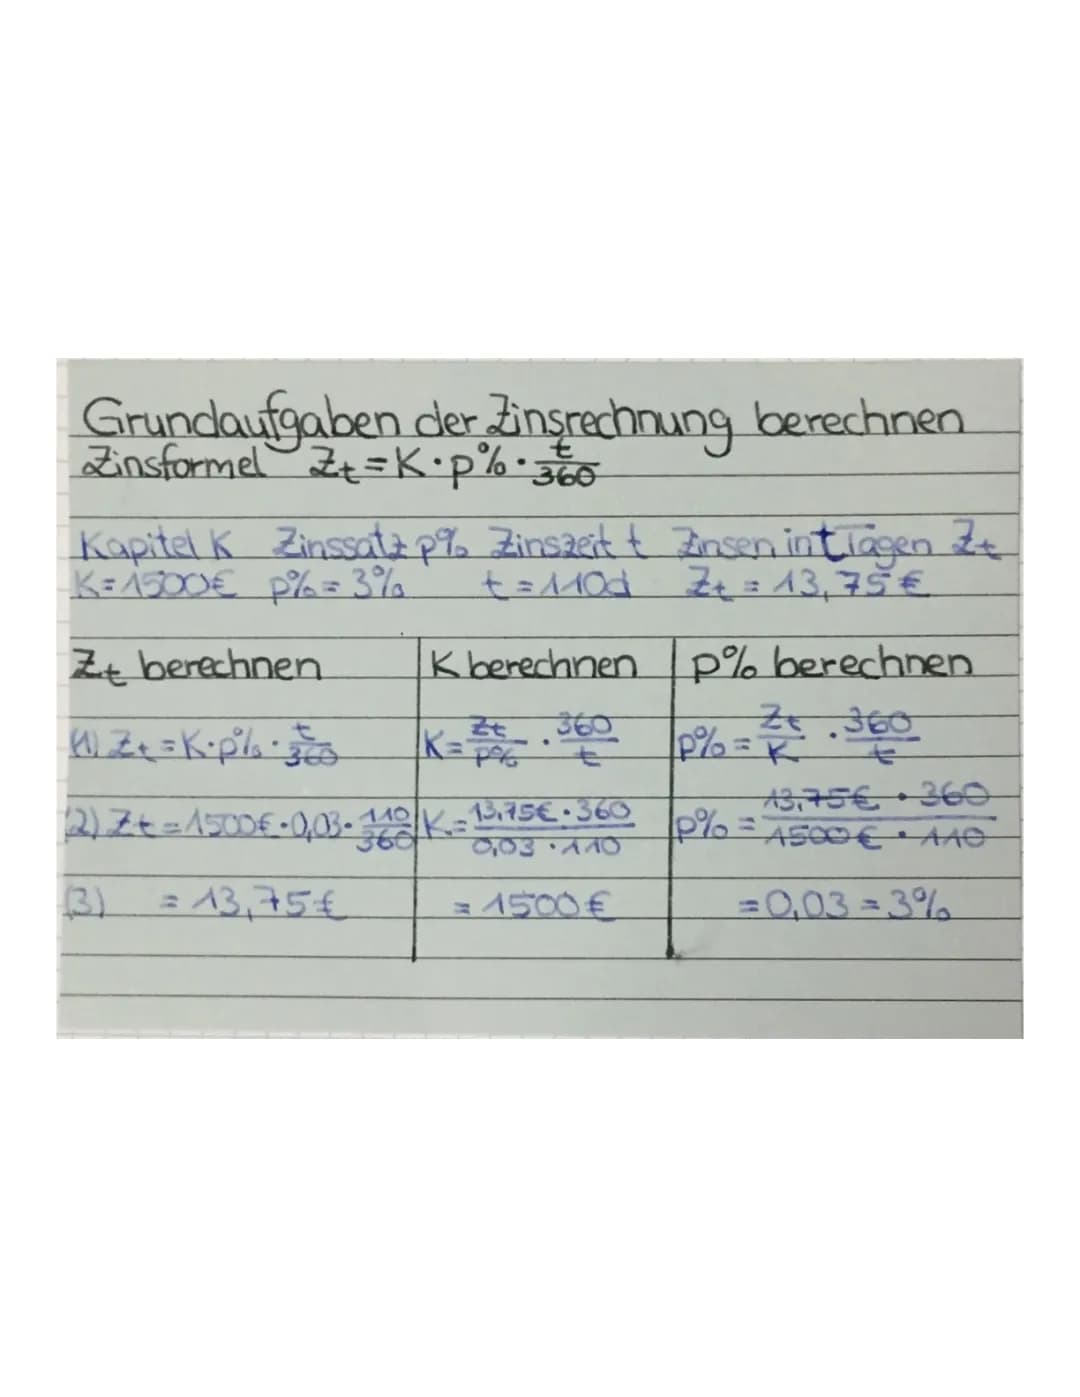 Grundaufgaben der Zinsrechnung berechnen
Zinsformel Zt = K · p% · t/360
Kapitel K Zinssatz p% Zinszeit t Zinsen in t Tagen Zt
K = 1500€ p% = 3% t = 110d Zt = 13,75€
Zt berechnen K berechnen p% berechnen
(1) Zt = K · p% · t/360 K = Zt/p% · 360/t p% = Zt/K · 360/t
(2) Zt = 1500€ · 0,03 · 110/360 K = 13,75€ · 360/0,03 · 110 p% = 13,75€ · 360/1500€ · 110
(3) = 13,75€ = 1500€ = 0,03 = 3%